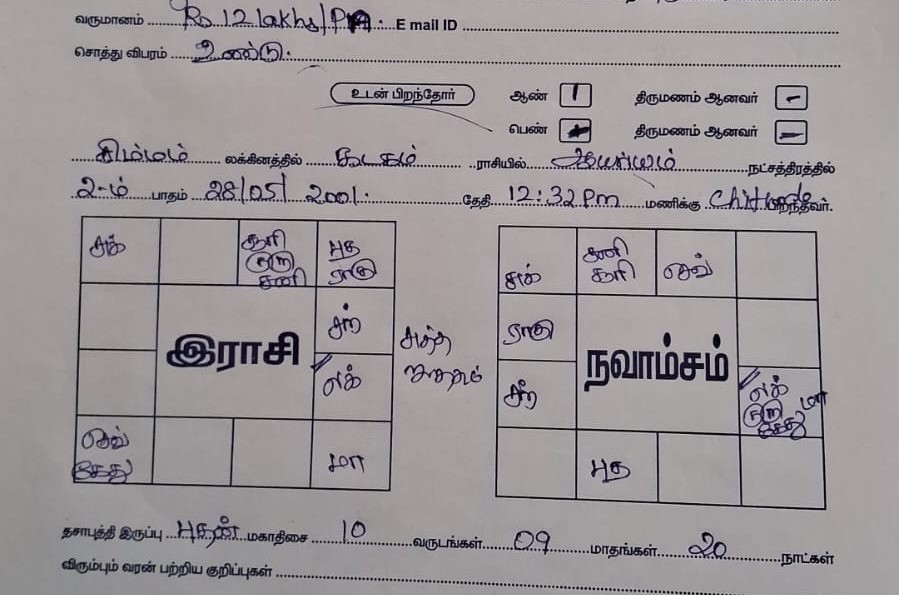 வருமானம் Rs 12 lakhs/PA E mail ID
சொத்து விபரம் உண்டு.
உடன் பிறந்தோர் ஆண் 1 திருமணம் ஆனவர் –
பெண் திருமணம் ஆனவர் –
சிம்மம் லக்கினத்தில் கடகம் ராசியில் ஆயில்யம் நட்சத்திரத்தில்
2-ம் பாதம் 28/05/2001. தேதி 12:32 Pm மணிக்கு பிறந்தவர்.
சுக் சூரி குரு சனி புத ராகு
சந்
இராசி
லக்
செவ் கேது மா
சுக் சனி சூரி செவ்
ராகு
நவாம்சம்
சந் லக் குரு கேது மா
புத
சுத்த ஜாதகம்
தசாபுத்தி இருப்பு புதன் மகாதிசை 10 வருடங்கள் 09 மாதங்கள் 20 நாட்கள்
விரும்பும் வரன் பற்றிய குறிப்புகள்